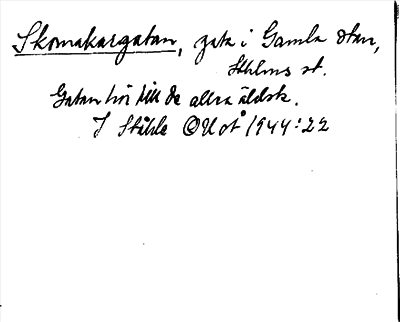 Skomakargatan, gata i Gamla stan,
Sthlms st.
Gatan hör till de allra äldsta.
I Ståhle OUoÅ 1944:22